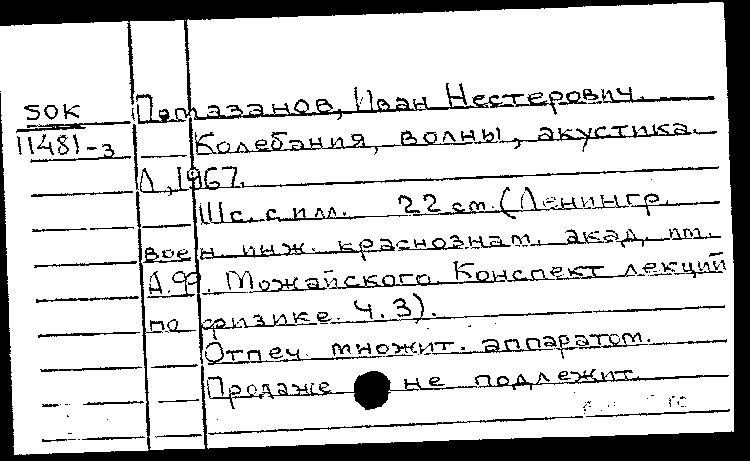 50К
11481-з
Патазанов, Иван Нестерович.
Колебания, волны, акустика.
Л, 1967.
111с. с илл. 22 см. (Ленингр.
воен. инж. краснознам. акад. им.
А.Ф. Можайского. Конспект лекций
по физике. Ч.3).
Отпеч. множит. аппаратом.
Продаже не подлежит.